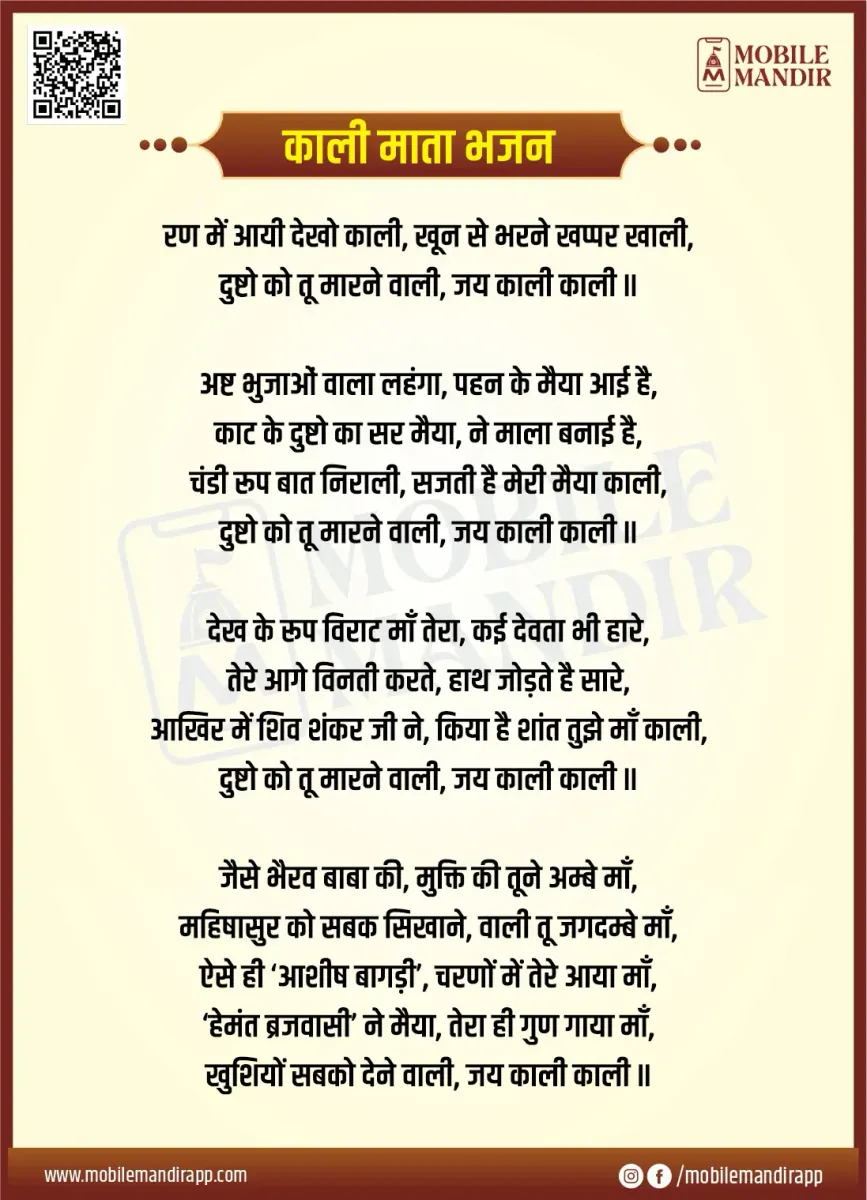 MOBILE
MANDIR
काली माता भजन
रण में आयी देखो काली, खून से भरने खप्पर खाली,
दुष्टो को तू मारने वाली, जय काली काली ॥
अष्ट भुजाओं वाला लहंगा, पहन के मैया आई है,
काट के दुष्टो का सर मैया, ने माला बनाई है,
चंडी रूप बात निराली, सजती है मेरी मैया काली,
दुष्टो को तू मारने वाली, जय काली काली ॥
देख के रूप विराट माँ तेरा, कई देवता भी हारे,
तेरे आगे विनती करते, हाथ जोड़ते है सारे,
आखिर में शिव शंकर जी ने, किया है शांत तुझे माँ काली,
दुष्टो को तू मारने वाली, जय काली काली ॥
जैसे भैरव बाबा की, मुक्ति की तूने अम्बे माँ,
महिषासुर को सबक सिखाने, वाली तू जगदम्बे माँ,
ऐसे ही ‘आशीष बागड़ी’, चरणों में तेरे आया माँ,
‘हेमंत ब्रजवासी’ ने मैया, तेरा ही गुण गाया माँ,
खुशियों सबको देने वाली, जय काली काली ॥
MOBILE
MANDIR
www.mobilemandirapp.com
/mobilemandirapp